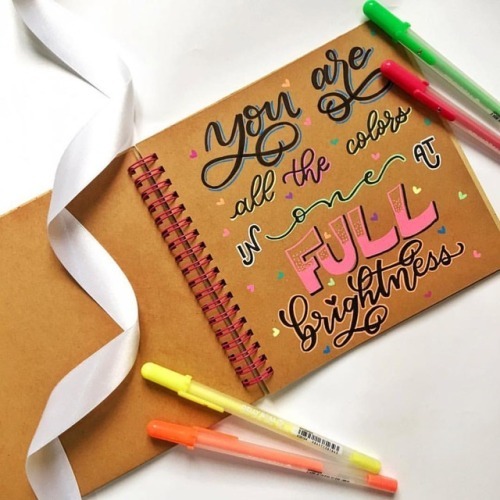 you are
all the colors
IN one AT
FULL
brightness